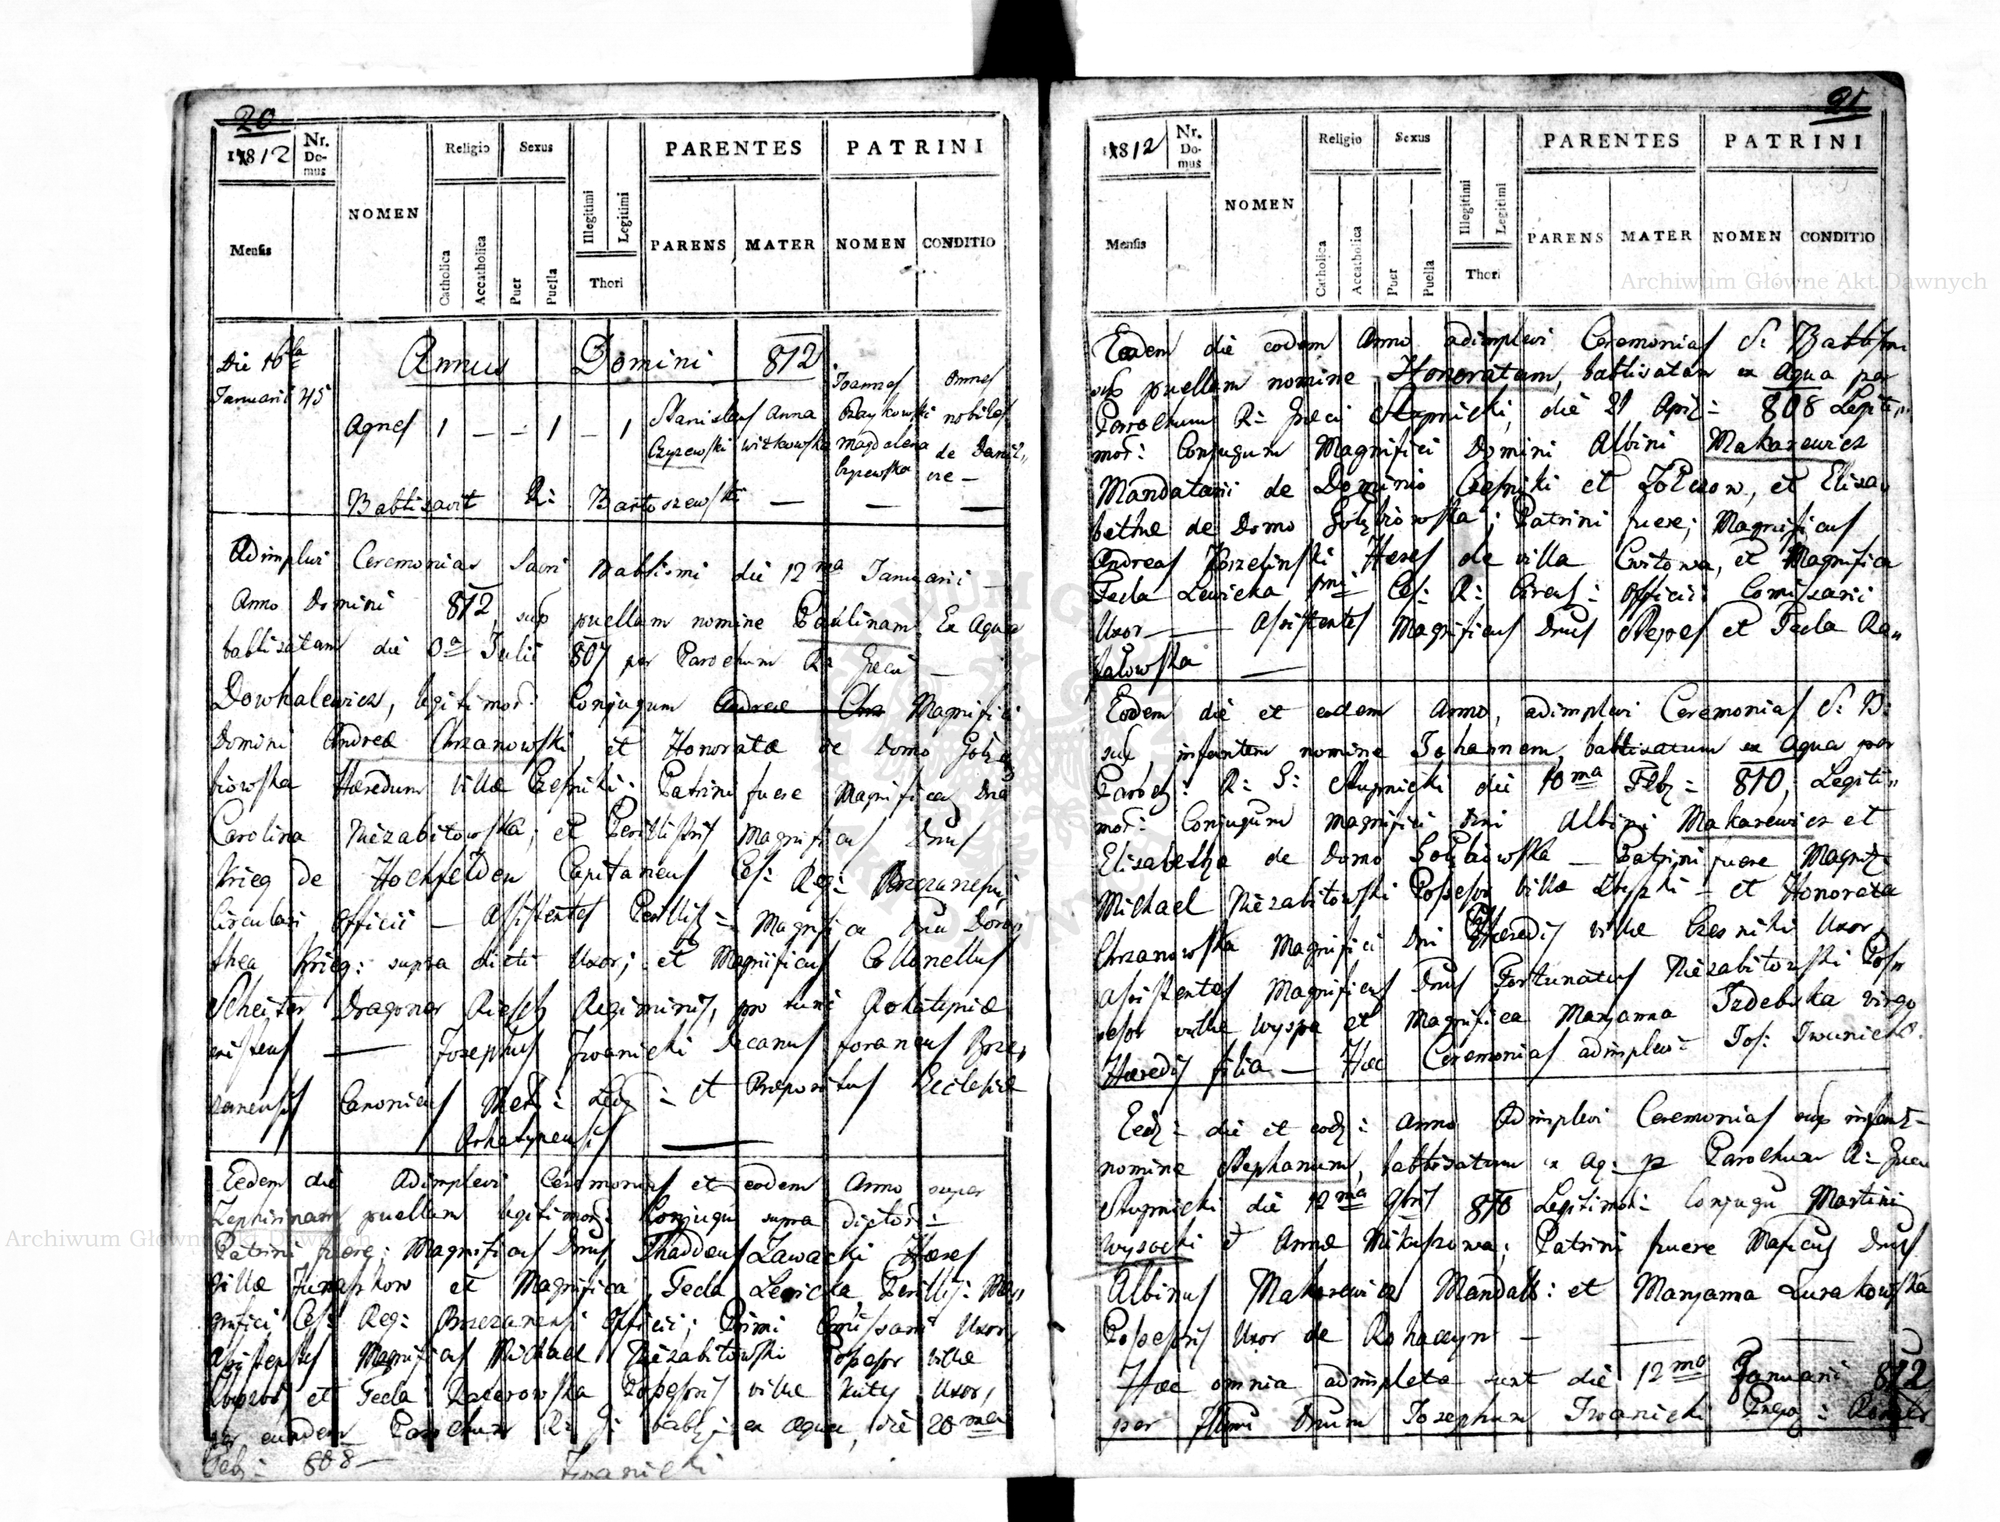 20
1812
Nr. Domus
NOMEN
Religio
Sexus
PARENTES
PATRINI
Mensis
Catholica
Accatholica
Puer
Puella
Illegitimi
Legitimi
Thori
PARENS
MATER
NOMEN
CONDITIO
Die 16ta Annus Domini 812
Januarii 45 Joannes omnes
Agnes 1 — — 1 — 1 Stanislaus Anna nobiles
Czyzewski Witkowska Magdalena de
Czyzewska
Babtisavit R: Bartoszewski — — —
Adimplevi Ceremonias Sacri Babtismi die 12ma Januarii —
Anno Domini 812, sup puellam nomine Paulinam Ex Aqua
babtisatam die Julii 807 per Parochum R: Graeci —
Dowhalewicz, legitimor: Conjugum Andreae Magnifici
Domini Andreae Chrzanowski, et Honoratae de Domo Gołę
biowska Haeredum villae Czesniki: Patrini fuere Magnifica Dna
Carolina Niezabitowska, et Perillustris Magnificus Dnus
Krieg de Hochfelden Capitaneus Ces: Reg: Brzezanensis
Circulari Officii — Assistentes Perillu: Magnifica Dna Doro,,
thea Krieg: supra dicti Uxor; et Magnificus Collonellus
Scheiter Dragoner Riesch Regiminis, pro tunc Rohatyniae
existens — Josephus Iwanicki Decanus foraneus Brze,,
zanensis Canonicus et Praepositus Ecclesiae
Rohatynensis —
Eedem die Adimplevi Ceremonias et eodem Anno super
Zephirinam puellam legitimor: Conjugu supra dictor:
Patrini fuere: Magnificus Dnus Thaddeus Zawacki Haeres
villae et Magnifica Tecla Lewicka Perillu: Ma,,
gnifici Ces: Reg: Brzezanensi Officii; Primi Comissarii Uxor,
Assistentes Magnificus Michael Niezabitowski Possesor villae
et Tecla Possessoris villae Kuty Uxor,
per eundem Parochum R: G: babt: ex aqua, die 20ma
Feb: 808 — Iwanicki
21
1812
Nr. Domus
NOMEN
Religio
Sexus
PARENTES
PATRINI
Mensis
Catholica
Accatholica
Puer
Puella
Illegitimi
Legitimi
Thori
PARENS
MATER
NOMEN
CONDITIO
Eodem die eodem Anno adimplevi Ceremonias S: Babtismi
sup puellam nomine Honoratam, babtisatam ex Aqua per
Parochum R: Graeci Stupnicki, die 21 Apr: 808 Legiti,,
mor: Conjugum Magnifici Domini Albini Makarewicz
Mandatarii de Dominio Czesniki et, et Elisa,,
bethae de Domo Gołębiowska; Patrini fuere; Magnificus
Andreas Haeres de villa, et Magnifica
Tecla Lewicka Ces: R: Officii Comissarii
Uxor — Assistentes Magnificus Dnus et Tecla Ra,,
fałowska —
Eodem die et eodem Anno, adimplevi Ceremonias S: B:
sup infantem nomine Johannem, babtisatum ex Aqua per
Paroch: R: G: Stupnicki die 10ma Feb: 810, Legiti,,
mor: Conjugum Magnifici Dni Albini Makarewicz et
Elisabetha de Domo Gołębiowska — Patrini fuere Magnif:
Michael Niezabitowski Possesor villae — et Honorata
Chrzanowska Magnifici Dni Haeredis villae Czesniki Uxor,
Assistentes Magnificus Dnus Fortunatus Niezabitowski Pos,,
sesor villae Wyspa et Magnifica Maryanna Izdebska virgo
Haeredis filia — Hae Ceremonias adimplevit Jos: Iwanicki.
Eed: die et eod: Anno Adimplevi Ceremonias sup infant:
nomine Stephanum, babtisatum ex Aq: p Parochum R: Graeci
Stupnicki die 12ma 9bris 810 Legitimor: Conjugu Martini
Wysocki et Annae; Patrini fuere Mag̃ficus Dnus
Albinus Makarewicz Mandatt: et Maryanna Lurakowska
Possessoris Uxor de Rohatyn —
Haec omnia adimpleta sunt die 12ma Januarii 812
per Dnum Josephum Iwanicki Praepo:
Archiwum Główne Akt Dawnych
Archiwum Główne Akt Dawnych